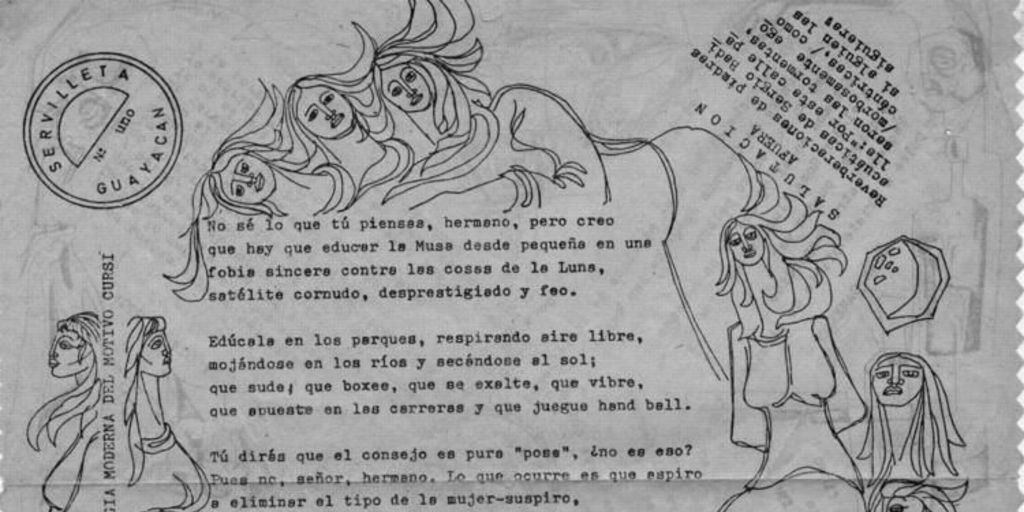 SERVILLETA
Nº uno
GUAYACAN
SALUTACION
No sé lo que tú piensas, hermano, pero creo
que hay que educar la Musa desde pequeña en una
fobia sincera contra las cosas de la Luna,
satélite cornudo, desprestigiado y feo.
Edúcala en los parques, respirando aire libre,
mojándose en los ríos y secándose al sol;
que sude, que boxee, que se exalte, que vibre,
que apueste en las carreras y que juegue hand ball.
Tú dirás que el consejo es pura "pose", ¿no es eso?
Pues no, señor, hermano. Lo que ocurre es que aspiro
a eliminar el tipo de la mujer-suspiro,
SIA MODERNA DEL MOTIVO CURSI
Reverberaciones de piedras